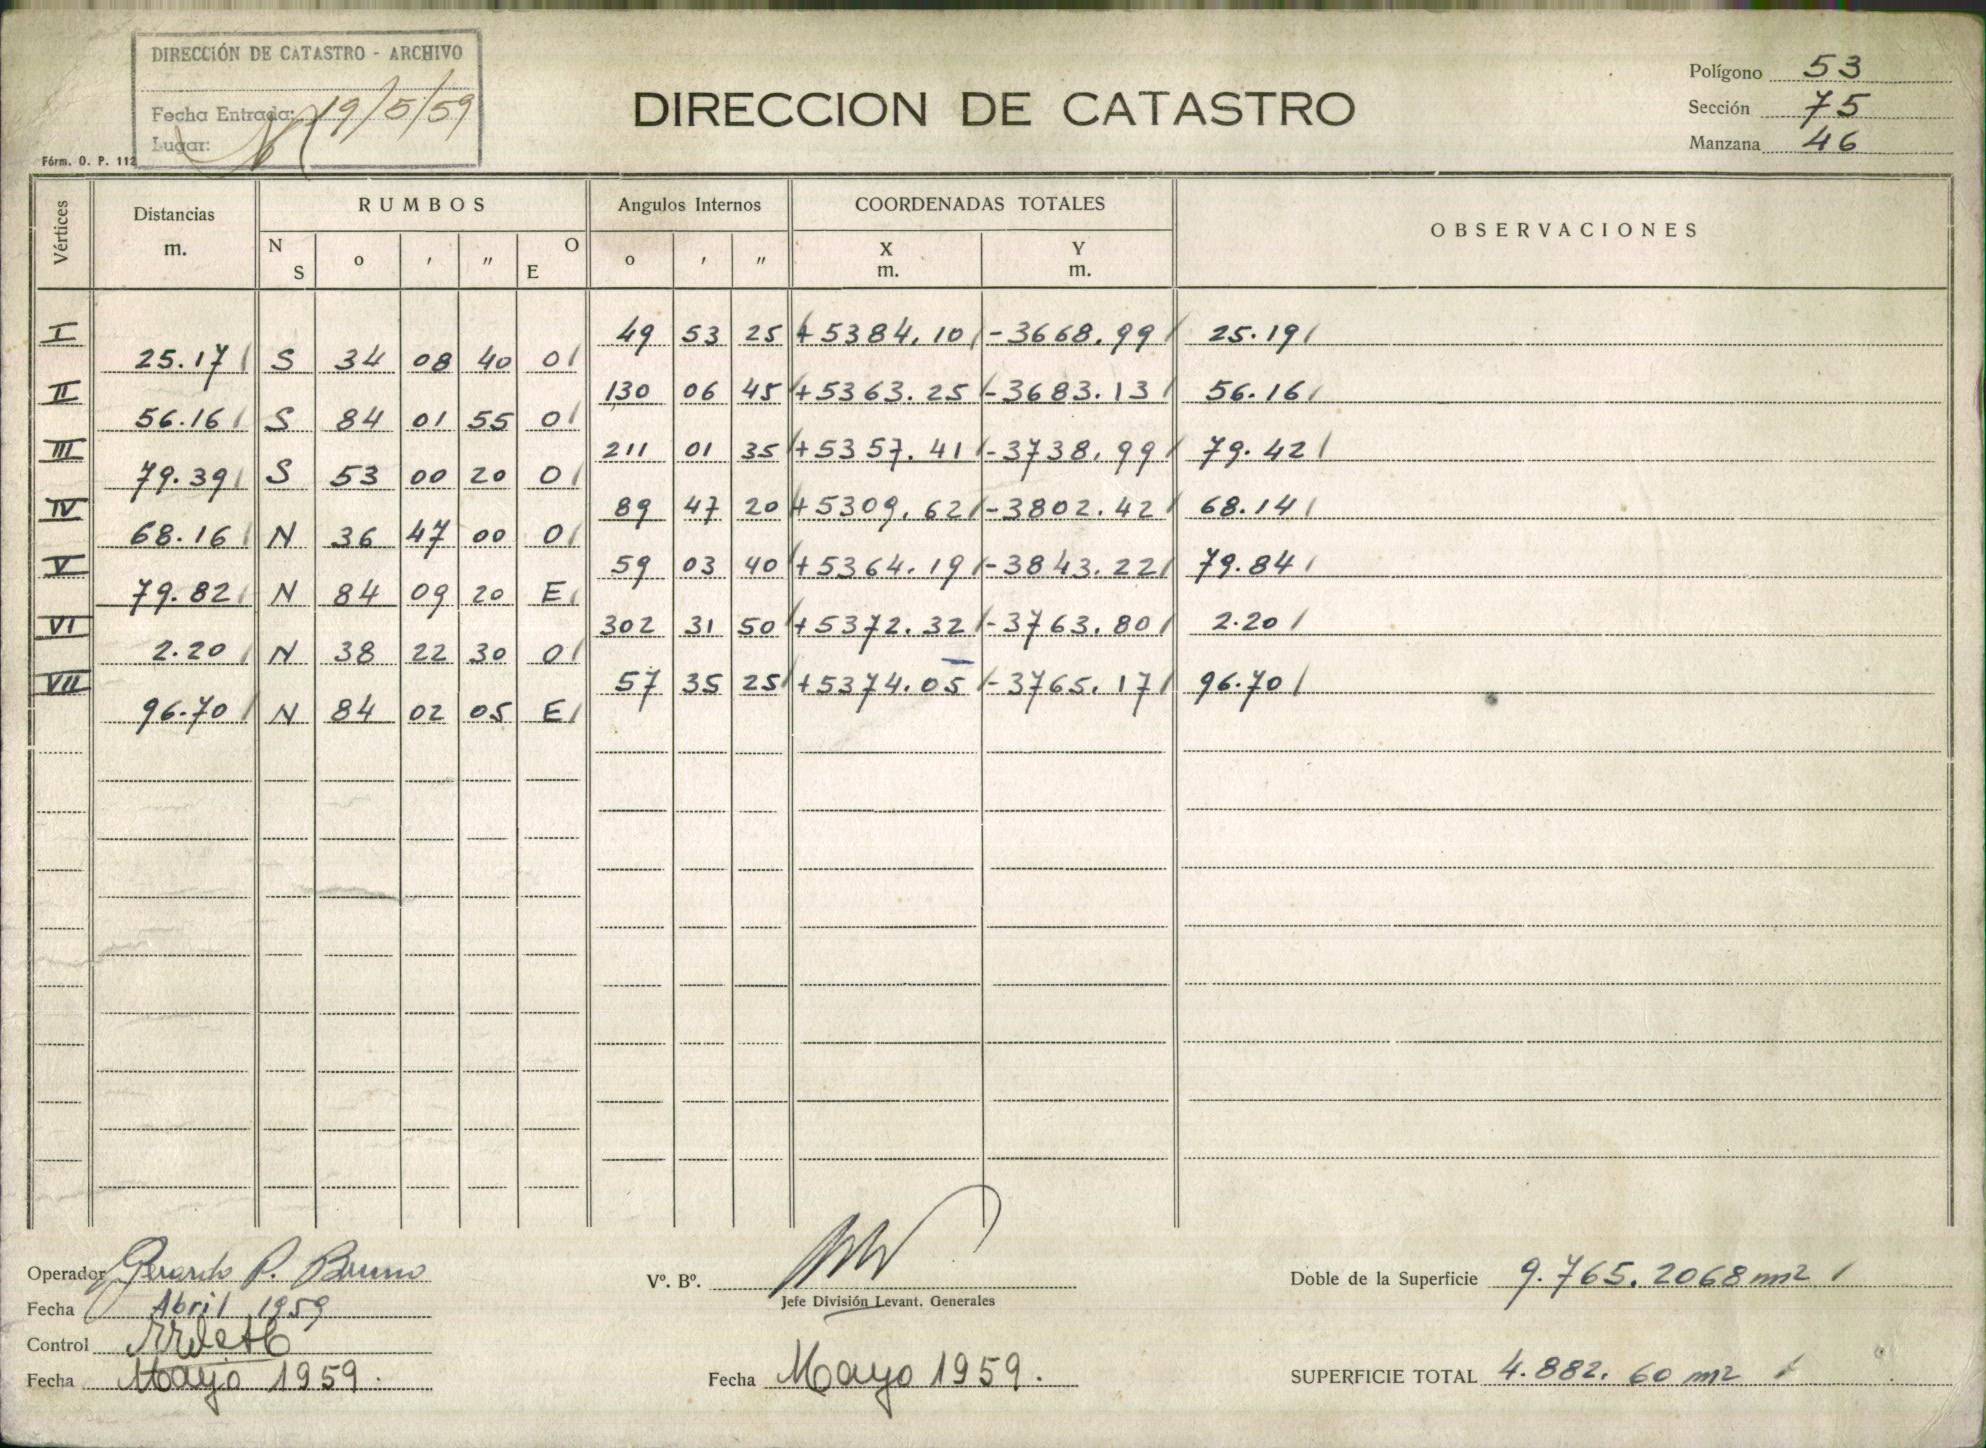 DIRECCIÓN DE CATASTRO - ARCHIVO
Fecha Entrada: 19/5/59
Lugar:
Fórm. O. P. 112
DIRECCION DE CATASTRO
Polígono 53
Sección 75
Manzana 46
Vértices Distancias m. RUMBOS Angulos Internos COORDENADAS TOTALES OBSERVACIONES
N S o ' " O E o ' " X m. Y m.
I 49 53 25 +5384.10 -3668.99 25.19
25.17 S 34 08 40 O
II 130 06 45 +5363.25 -3683.13 56.16
56.16 S 84 01 55 O
III 211 01 35 +5357.41 -3738.99 79.42
79.39 S 53 00 20 O
IV 89 47 20 +5309.62 -3802.42 68.14
68.16 N 36 47 00 O
V 59 03 40 +5364.19 -3843.22 79.84
79.82 N 84 09 20 E
VI 302 31 50 +5372.32 -3763.80 2.20
2.20 N 38 22 30 O
VII 57 35 25 +5374.05 -3765.17 96.70
96.70 N 84 02 05 E
Operador Gerardo P. Bruno
Fecha Abril 1959
Control
Fecha Mayo 1959.
Vº. Bº.
Jefe División Levant. Generales
Fecha Mayo 1959.
Doble de la Superficie 9.765.2068 m2
SUPERFICIE TOTAL 4.882.60 m2